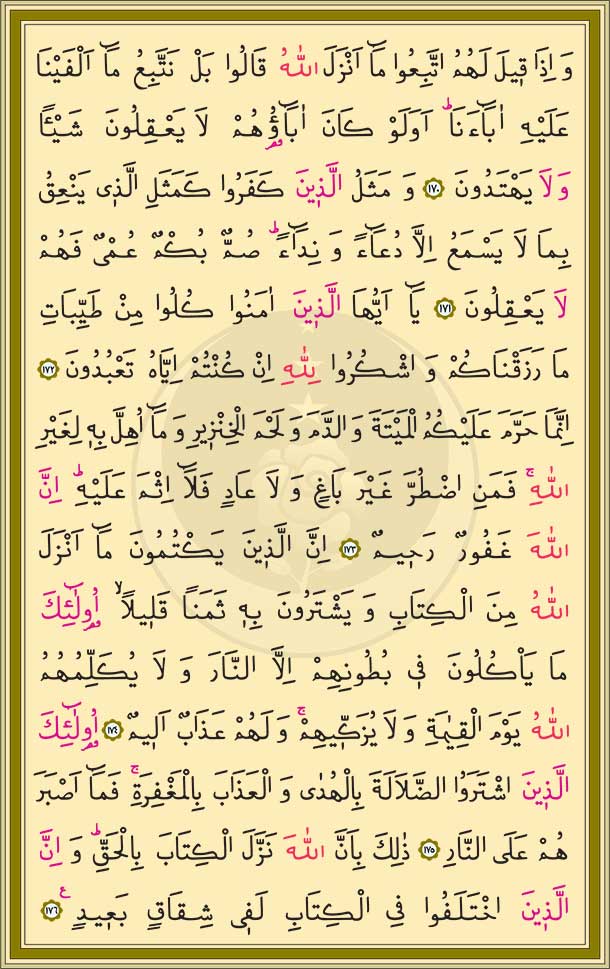 وَ اِذَا ق۪يلَ لَهُمُ اتَّبِعُوا مَٓا اَنْزَلَ اللّٰهُ قَالُوا بَلْ نَتَّبِعُ مَٓا اَلْفَيْنَا
عَلَيْهِ اٰبَٓاءَنَاۜ اَوَلَوْ كَانَ اٰبَٓاؤُ۬هُمْ لَا يَعْقِلُونَ شَيْـًٔا
وَلَا يَهْتَدُونَ ﴿١٧٠﴾ وَ مَثَلُ الَّذ۪ينَ كَفَرُوا كَمَثَلِ الَّذ۪ي يَنْعِقُ
بِمَا لَا يَسْمَعُ اِلَّا دُعَٓاءً وَ نِدَٓاءًۜ صُمٌّ بُكْمٌ عُمْيٌ فَهُمْ
لَا يَعْقِلُونَ ﴿١٧١﴾ يَٓا اَيُّهَا الَّذ۪ينَ اٰمَنُوا كُلُوا مِنْ طَيِّبَاتِ
مَا رَزَقْنَاكُمْ وَ اشْكُرُوا لِلّٰهِ اِنْ كُنْتُمْ اِيَّاهُ تَعْبُدُونَ ﴿١٧٢﴾
اِنَّمَا حَرَّمَ عَلَيْكُمُ الْمَيْتَةَ وَ الدَّمَ وَ لَحْمَ الْخِنْز۪يرِ وَ مَٓا اُهِلَّ بِه۪ لِغَيْرِ
اللّٰهِۚ فَمَنِ اضْطُرَّ غَيْرَ بَاغٍ وَ لَا عَادٍ فَلَٓا اِثْمَ عَلَيْهِۜ اِنَّ
اللّٰهَ غَفُورٌ رَح۪يمٌ ﴿١٧٣﴾ اِنَّ الَّذ۪ينَ يَكْتُمُونَ مَٓا اَنْزَلَ
اللّٰهُ مِنَ الْكِتَابِ وَ يَشْتَرُونَ بِه۪ ثَمَنًا قَل۪يلًاۙ اُو۬لٰٓئِكَ
مَا يَاْكُلُونَ ف۪ي بُطُونِهِمْ اِلَّا النَّارَ وَ لَا يُكَلِّمُهُمُ
اللّٰهُ يَوْمَ الْقِيٰمَةِ وَ لَا يُزَكّ۪يهِمْۚ وَ لَهُمْ عَذَابٌ اَل۪يمٌ ﴿١٧٤﴾ اُو۬لٰٓئِكَ
الَّذ۪ينَ اشْتَرَوُا الضَّلَالَةَ بِالْهُدٰى وَ الْعَذَابَ بِالْمَغْفِرَةِۚ فَمَٓا اَصْبَرَ
هُمْ عَلَى النَّارِ ﴿١٧٥﴾ ذٰلِكَ بِاَنَّ اللّٰهَ نَزَّلَ الْكِتَابَ بِالْحَقِّۜ وَ اِنَّ
الَّذ۪ينَ اخْتَلَفُوا فِي الْكِتَابِ لَف۪ي شِقَاقٍ بَع۪يدٍ ع ﴿١٧٦﴾